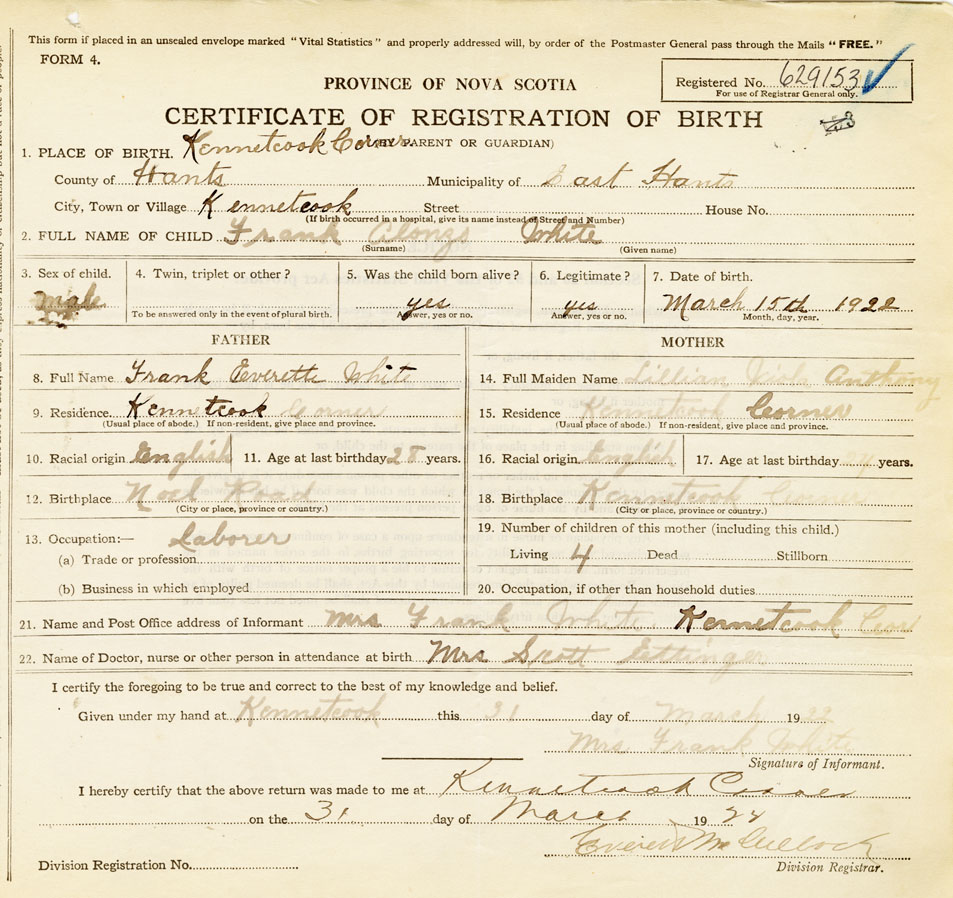 This form if placed in an unsealed envelope marked "Vital Statistics" and properly addressed will, by order of the Postmaster General pass through the Mails "FREE."
FORM 4.
PROVINCE OF NOVA SCOTIA
Registered No. 629153
For use of Registrar General only.
CERTIFICATE OF REGISTRATION OF BIRTH
(BY PARENT OR GUARDIAN)
1. PLACE OF BIRTH. Kennetcook Corner
County of Hants Municipality of East Hants
City, Town or Village Kennetcook Street House No.
(If birth occurred in a hospital, give its name instead of Street and Number)
2. FULL NAME OF CHILD Frank Alonzo White
(Surname) (Given name)
3. Sex of child. 4. Twin, triplet or other? 5. Was the child born alive? 6. Legitimate? 7. Date of birth.
male yes yes March 15th 1922
To be answered only in the event of plural birth. Answer, yes or no. Answer, yes or no. Month, day, year.
FATHER MOTHER
8. Full Name Frank Everette White 14. Full Maiden Name Lillian Viola Anthony
9. Residence. Kennetcook Corner 15. Residence Kennetcook Corner
(Usual place of abode.) If non-resident, give place and province. (Usual place of abode.) If non-resident, give place and province.
10. Racial origin English 11. Age at last birthday 28 years. 16. Racial origin English 17. Age at last birthday years.
12. Birthplace Noel Road 18. Birthplace Kennetcook Corner
(City or place, province or country.) (City or place, province or country.)
13. Occupation:— Laborer 19. Number of children of this mother (including this child.)
(a) Trade or profession Living 4 Dead Stillborn
(b) Business in which employed 20. Occupation, if other than household duties
21. Name and Post Office address of Informant Mrs Frank White Kennetcook
22. Name of Doctor, nurse or other person in attendance at birth Mrs Scott Ettinger
I certify the foregoing to be true and correct to the best of my knowledge and belief.
Given under my hand at Kennetcook this 31 day of March 1922
Mrs Frank White
Signature of Informant.
I hereby certify that the above return was made to me at Kennetcook Corner
on the 31 day of March 19
Everett McCullock
Division Registration No. Division Registrar.